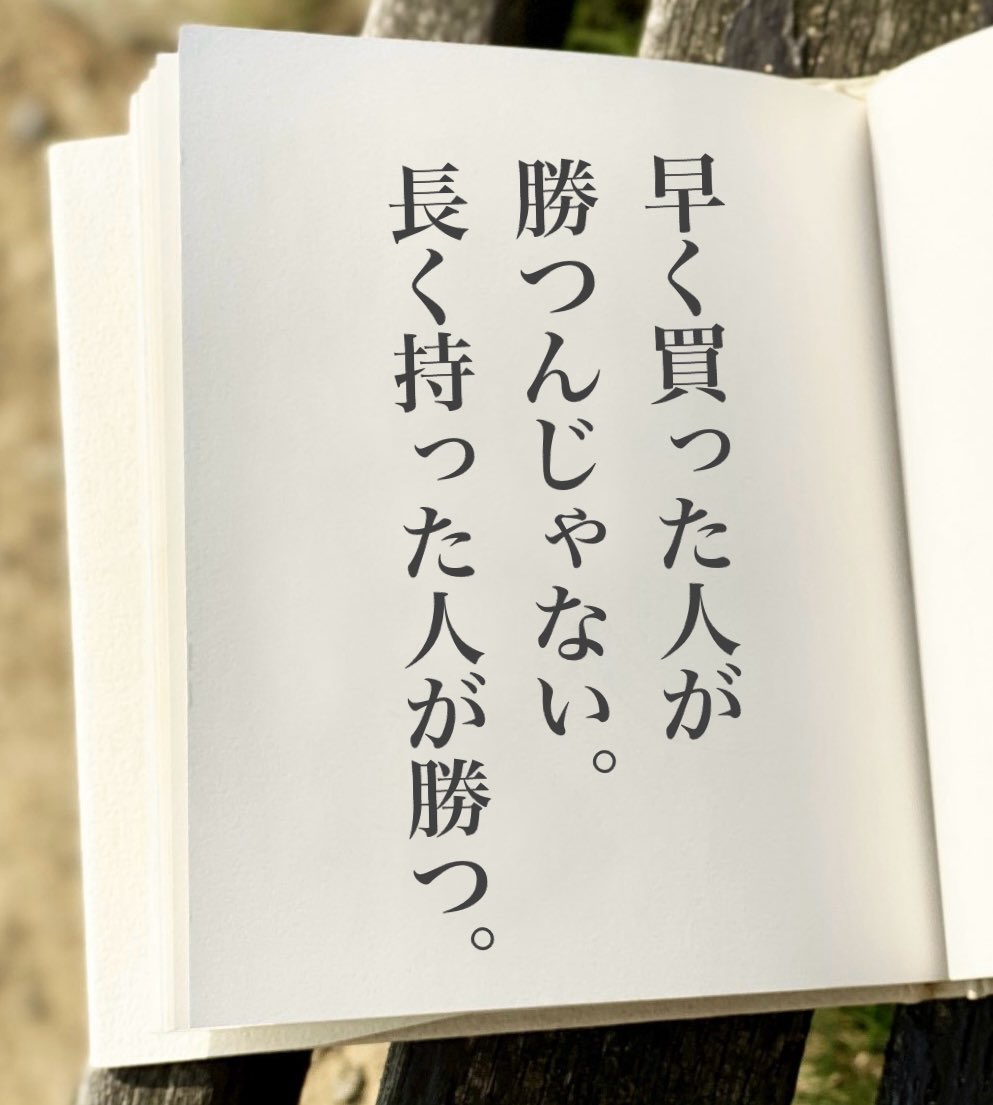 早く買った人が
勝つんじゃない。
長く持った人が勝つ。